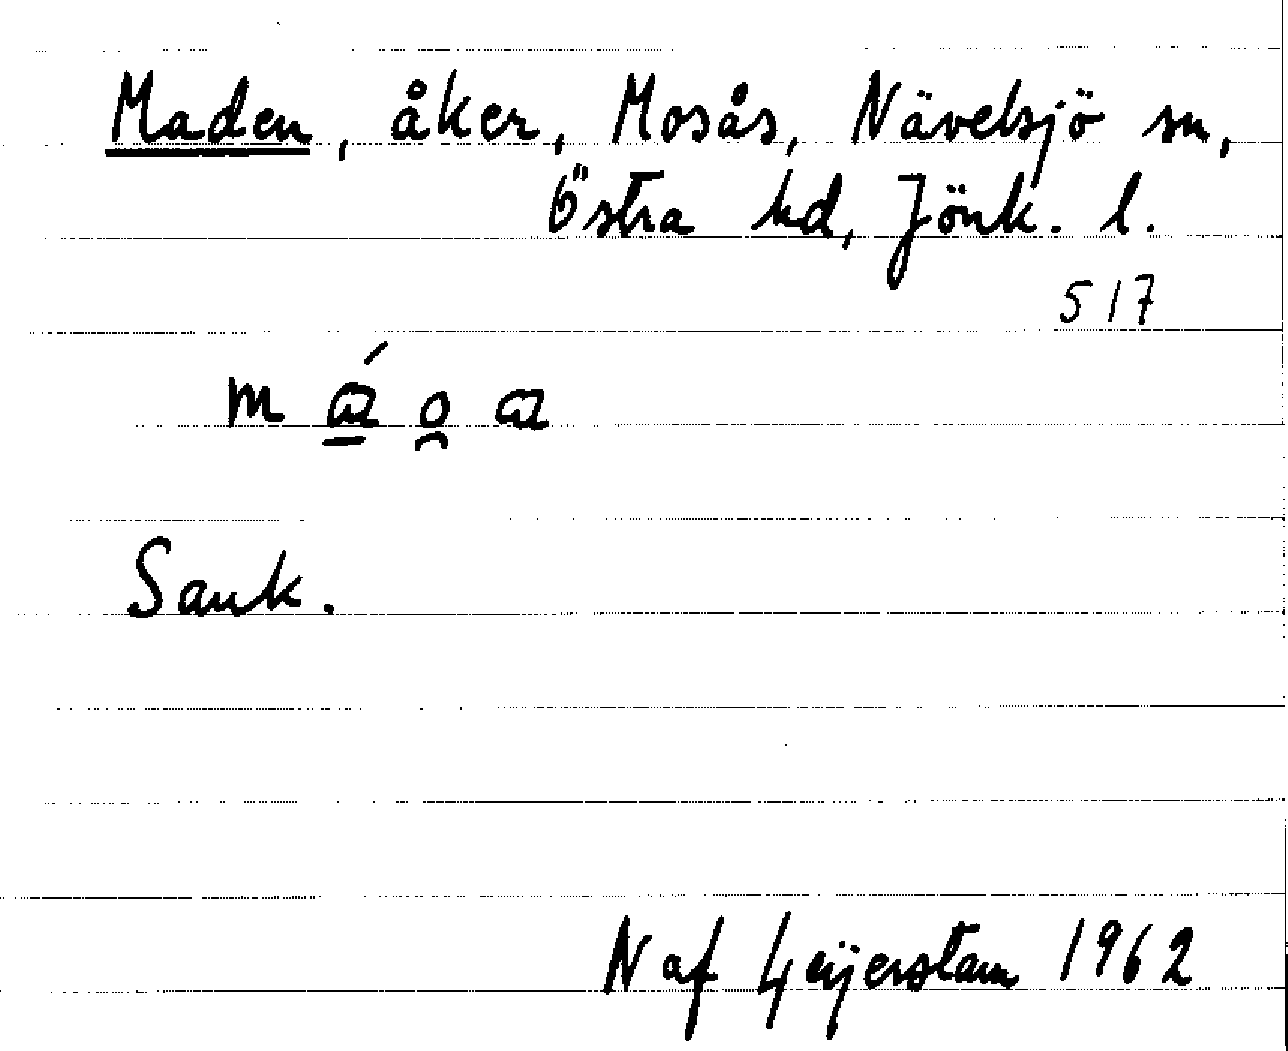 Maden, åker, Mosås, Nävelsjö sn,
Östra hd, Jönk. l.
517
Sank.
N af Geijerstam 1962